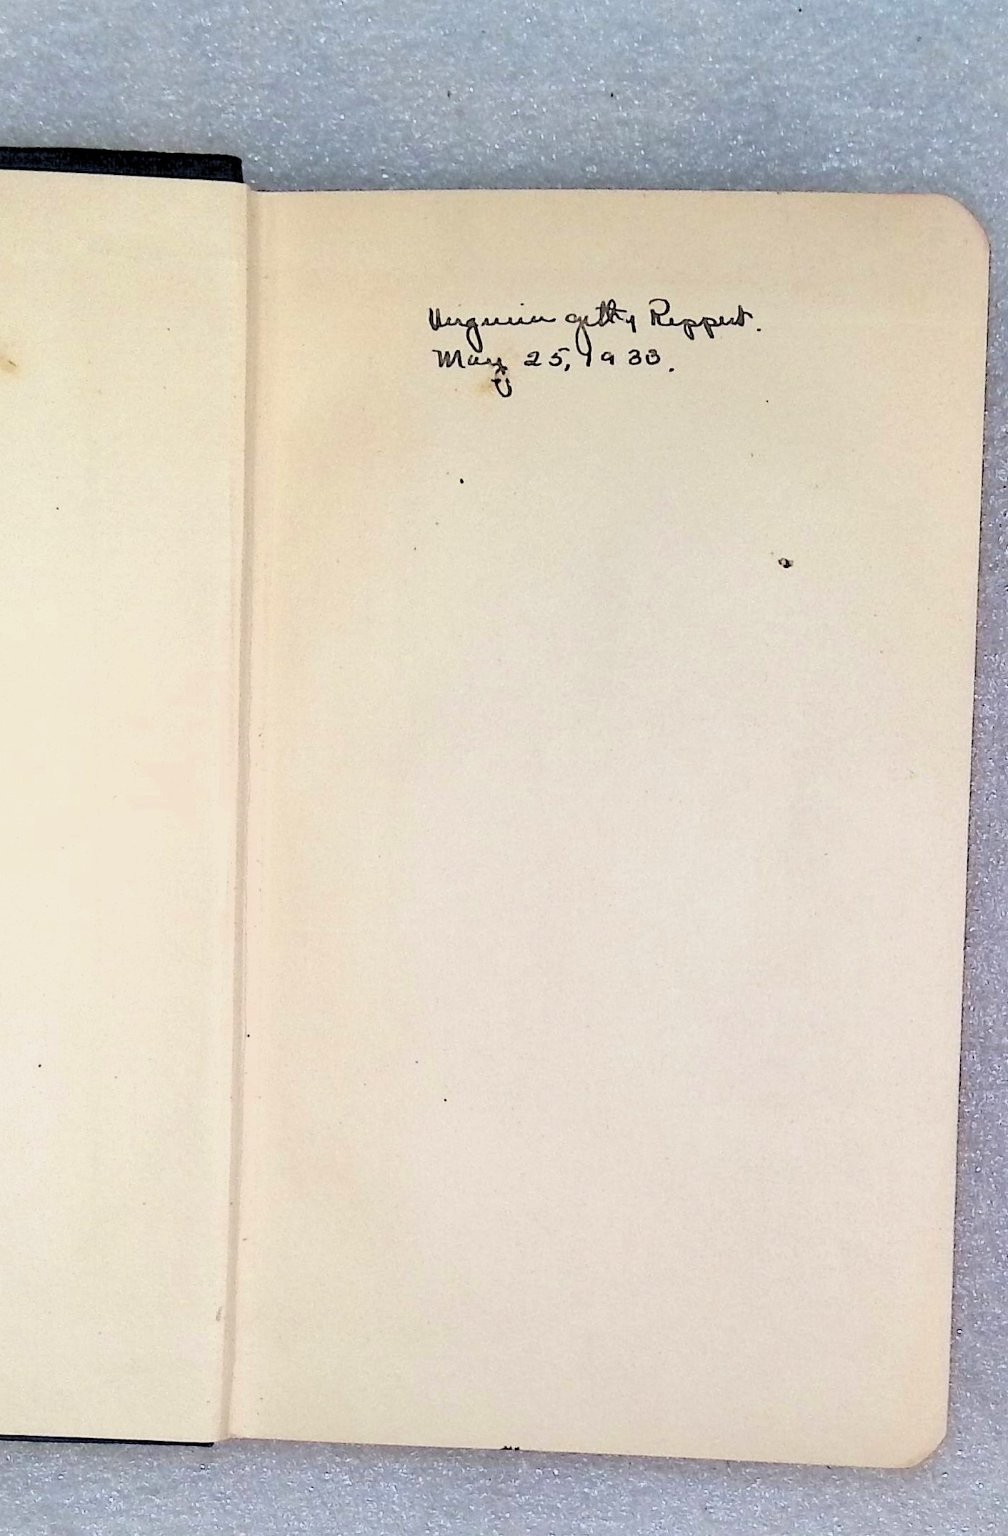 Virginia Getty Reppert.
May 25, 1933.